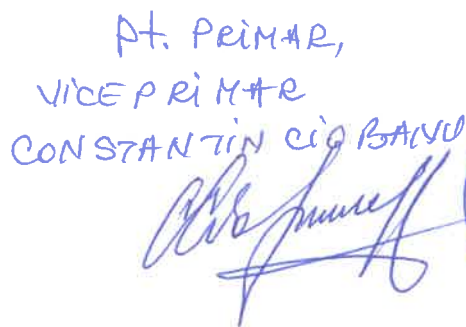 pt. PRiMAR,
ViCEPRiMAR
CONSTANTiN CiOBANU